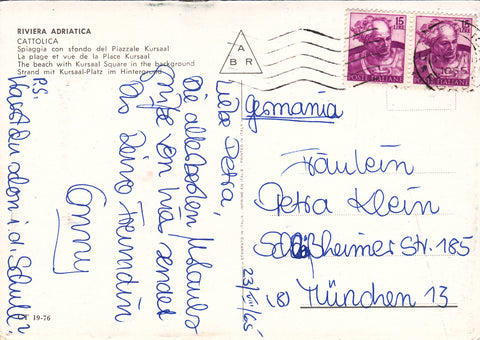 RIVIERA ADRIATICA
CATTOLICA
Spiaggia con sfondo del Piazzale Kursaal
La plage et vue de la Place Kursaal
The beach with Kursaal Square in the background
Strand mit Kursaal-Platz im Hintergrund
A
B R
15
LIRE
POSTE ITALIANE
15
LIRE
POSTE ITALIANE
Germania
Liebe Petra,
Die allerbesten Urlaubs
grüße von hier sendet
Dir Deine Freundin
Conny
P.S.:
Warst du schon i. d. Schule?
23/VII/65
Fräulein
Petra Klein
Schleißheimer Str. 185
(8) München 13
19-76